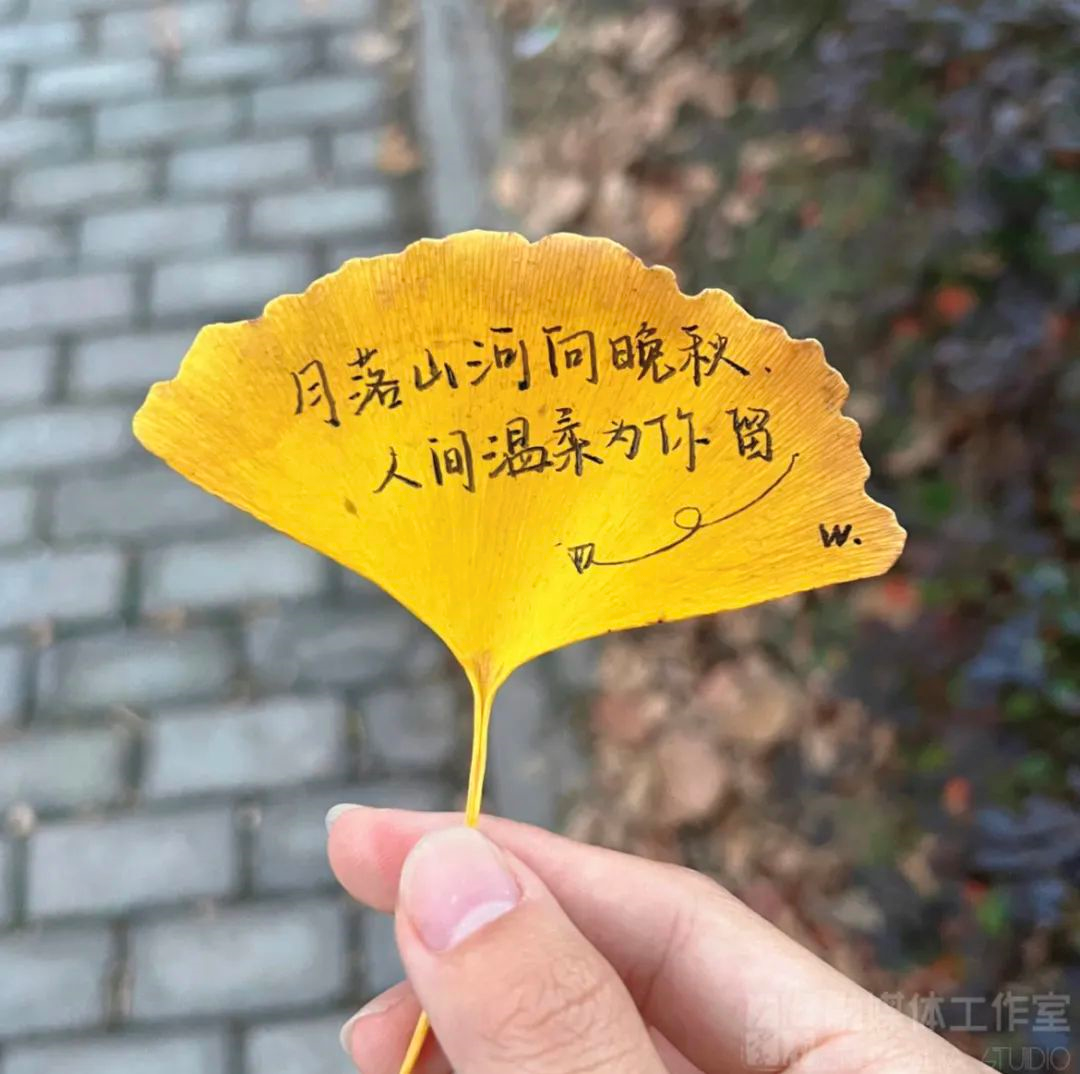 月落山河问晚秋.
人间温柔为你留
W.
媒体工作室
STUDIO